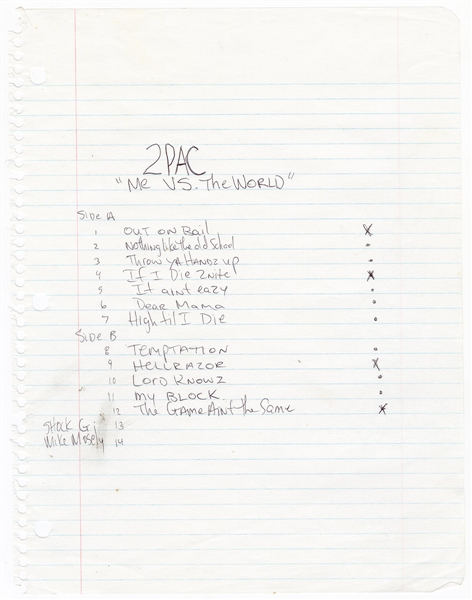 2PAC
"Me VS. The WORLD"
Side A
1 OUT ON Bail X
2 Nothing like the old School
3 Throw YA HANDZ UP
4 If I Die 2Nite X
5 It aint eazy
6 Dear Mama
7 High til I Die
Side B
8 TEMPTATION
9 HELLRAZOR X
10 LORD KNOWZ
11 My BLOCK
12 The GAME Ain't the Same X
SHOCK G; 13
Mike Mosely 14